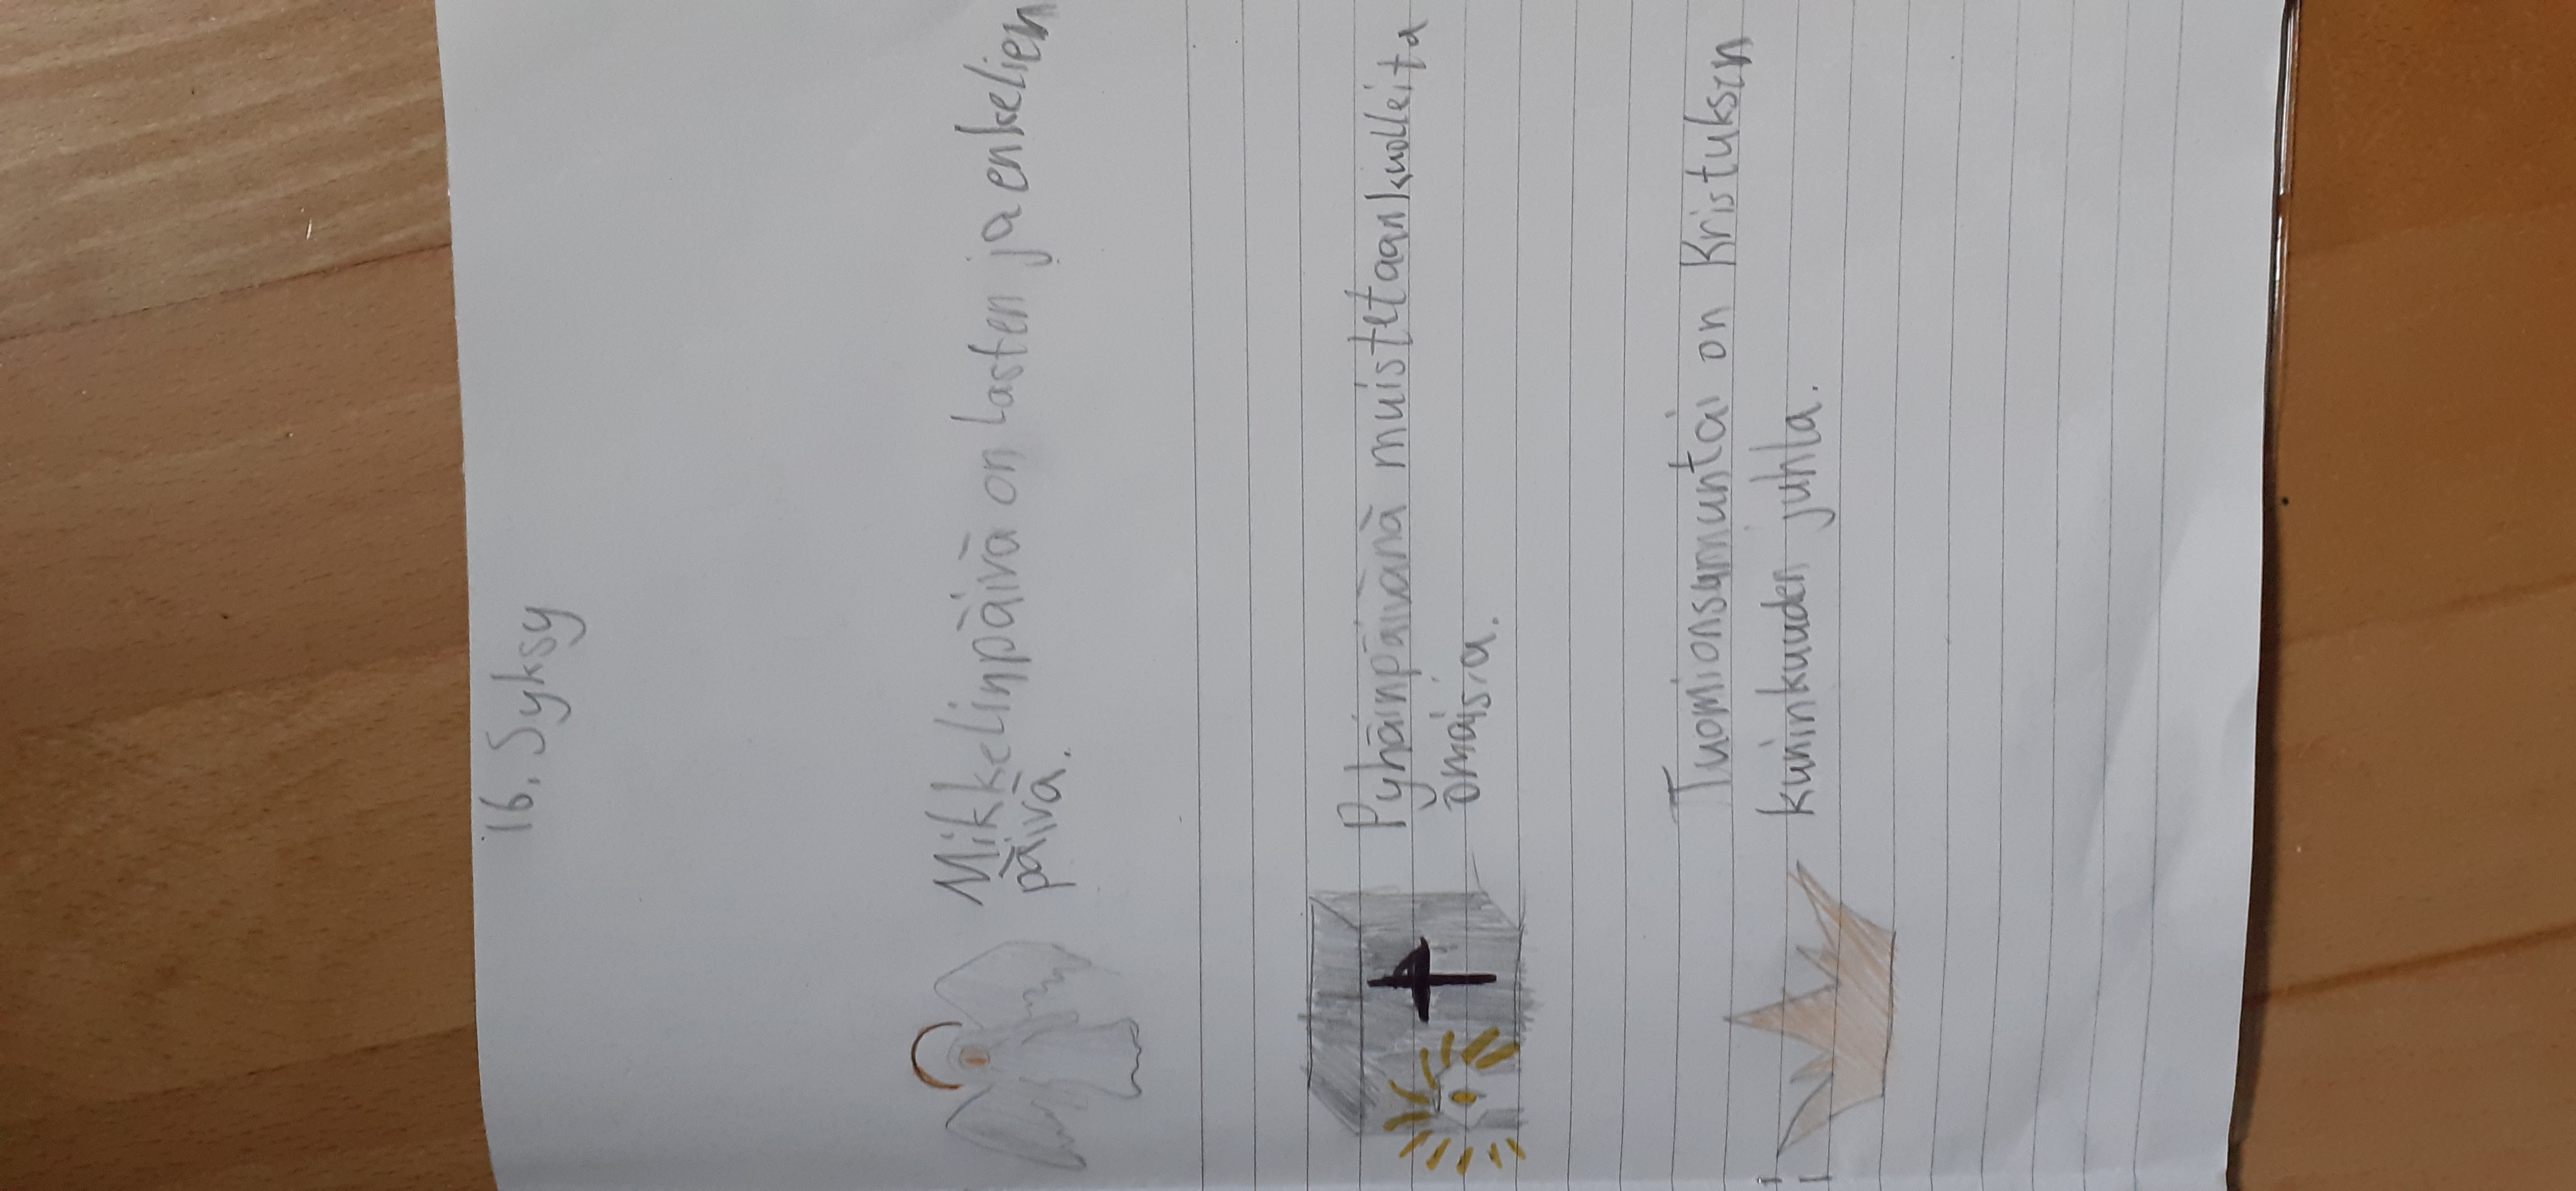 16. Syksy
Mikkelinpäivä on lasten ja enkelien
päivä.
Pyhäinpäivänä muistetaan kuolleita
omaisia.
Tuomionsunnuntai on Kristuksen
kuninkuuden juhla.